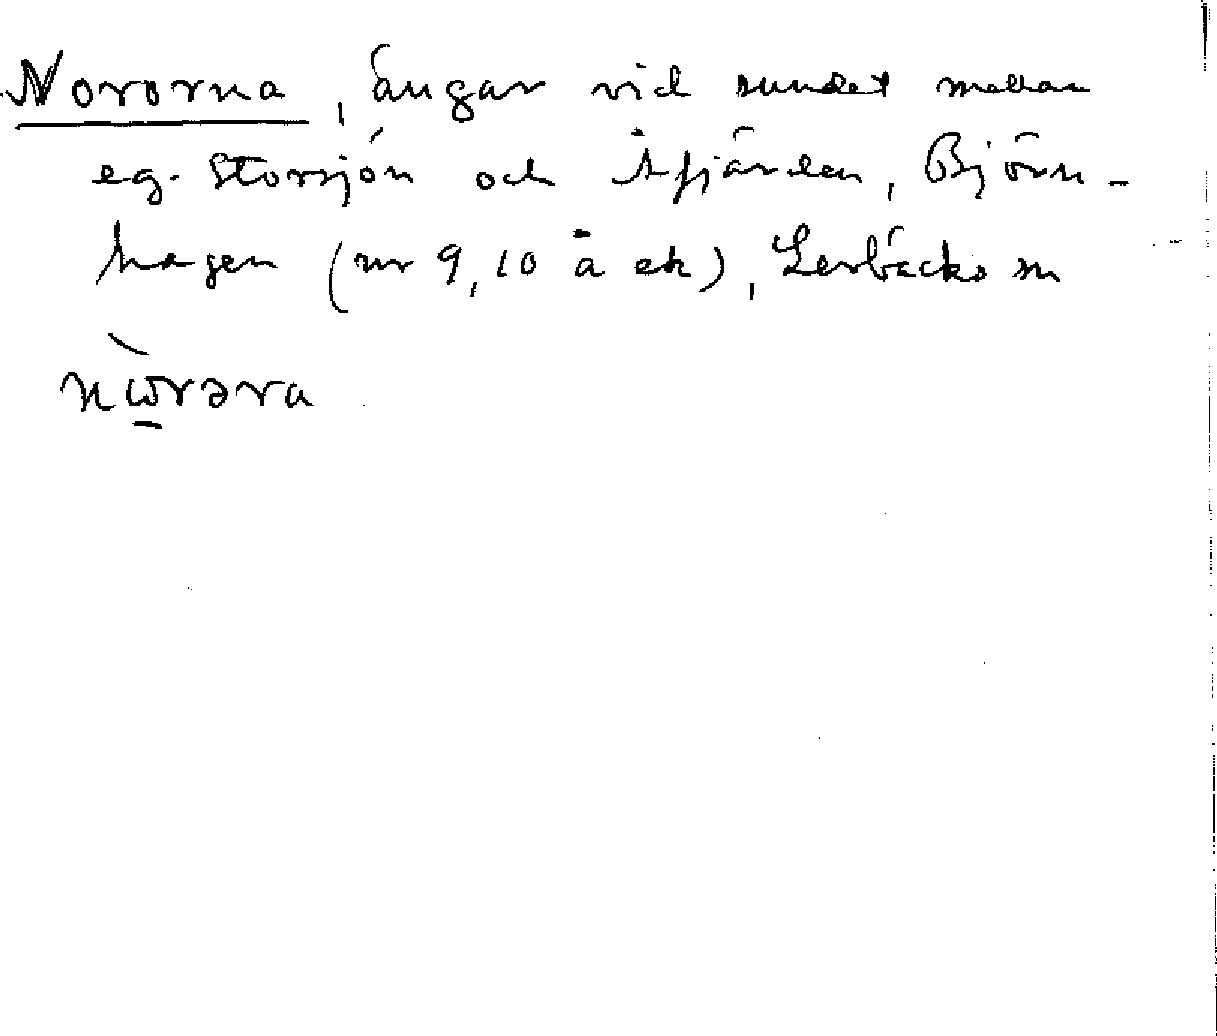 Nororna, ängar vid sundet mellan
eg. Storsjön och Åfjärden, Björn-
hagen (nr 9, 10 å ek), Lerbäcks sn
nὼrəra